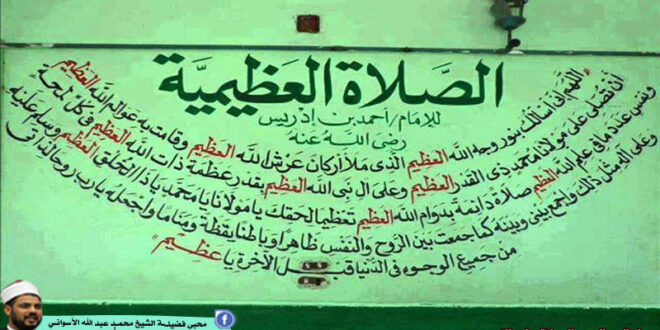 الصَّلاة العَظِيميَّة
للإمام / أحمد بن إدريس
رضى الله عنه
"اللهم إنى أسألك بنور وجه الله العظيم الذى ملأ أركان عرش الله العظيم وقامت به عوالم الله العظيم
أن تصلى على مولانا محمد ذى القدر العظيم وعلى آل نبى الله العظيم بقدر عظمة ذات الله العظيم فى كل لمحة
ونفس عدد ما فى علم الله العظيم صلاة دائمة بدوام الله العظيم تعظيما لحقك يا مولانا يا محمد يا ذا الخلق العظيم وسلم عليه
وعلى آله مثل ذلك واجمع بينى وبينه كما جمعت بين الروح والنفس ظاهرا وباطنا يقظة ومناما واجعله يارب روحا لذاتى
من جميع الوجوه فى الدنيا قبل الآخرة يا عظيم"
محبى فضيلة الشيخ محمد عبد الله الأسوانى